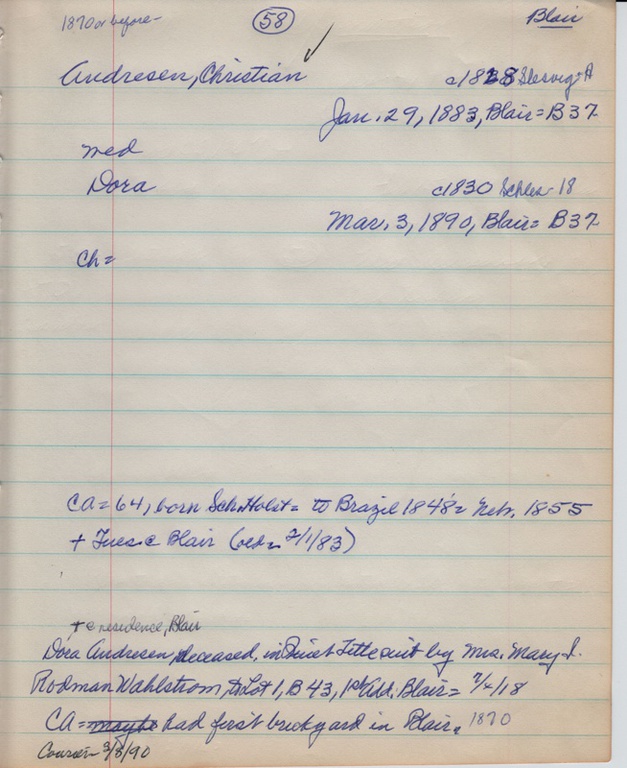 1870 or before-
58
Blair
Andresen, Christian c1828 Slesvig-A
Jan. 29, 1883, Blair = B37
med
Dora c1830 Schles- 18
Mar. 3, 1890, Blair = B37
Ch =
CA = 64, born Sch. Holst = to Brazil 1848 = Neb. 1855
+ Tues @ Blair (2/1/83)
+ @ residence, Blair
Dora Andresen, deceased, in Quiet Title suit by Mrs. Mary I.
Rodman Wahlstrom, to Lot 1, B 43, 1st Add. Blair = 7/4/18
CA = maybe had first brickyard in Blair. 1870
3/8/90